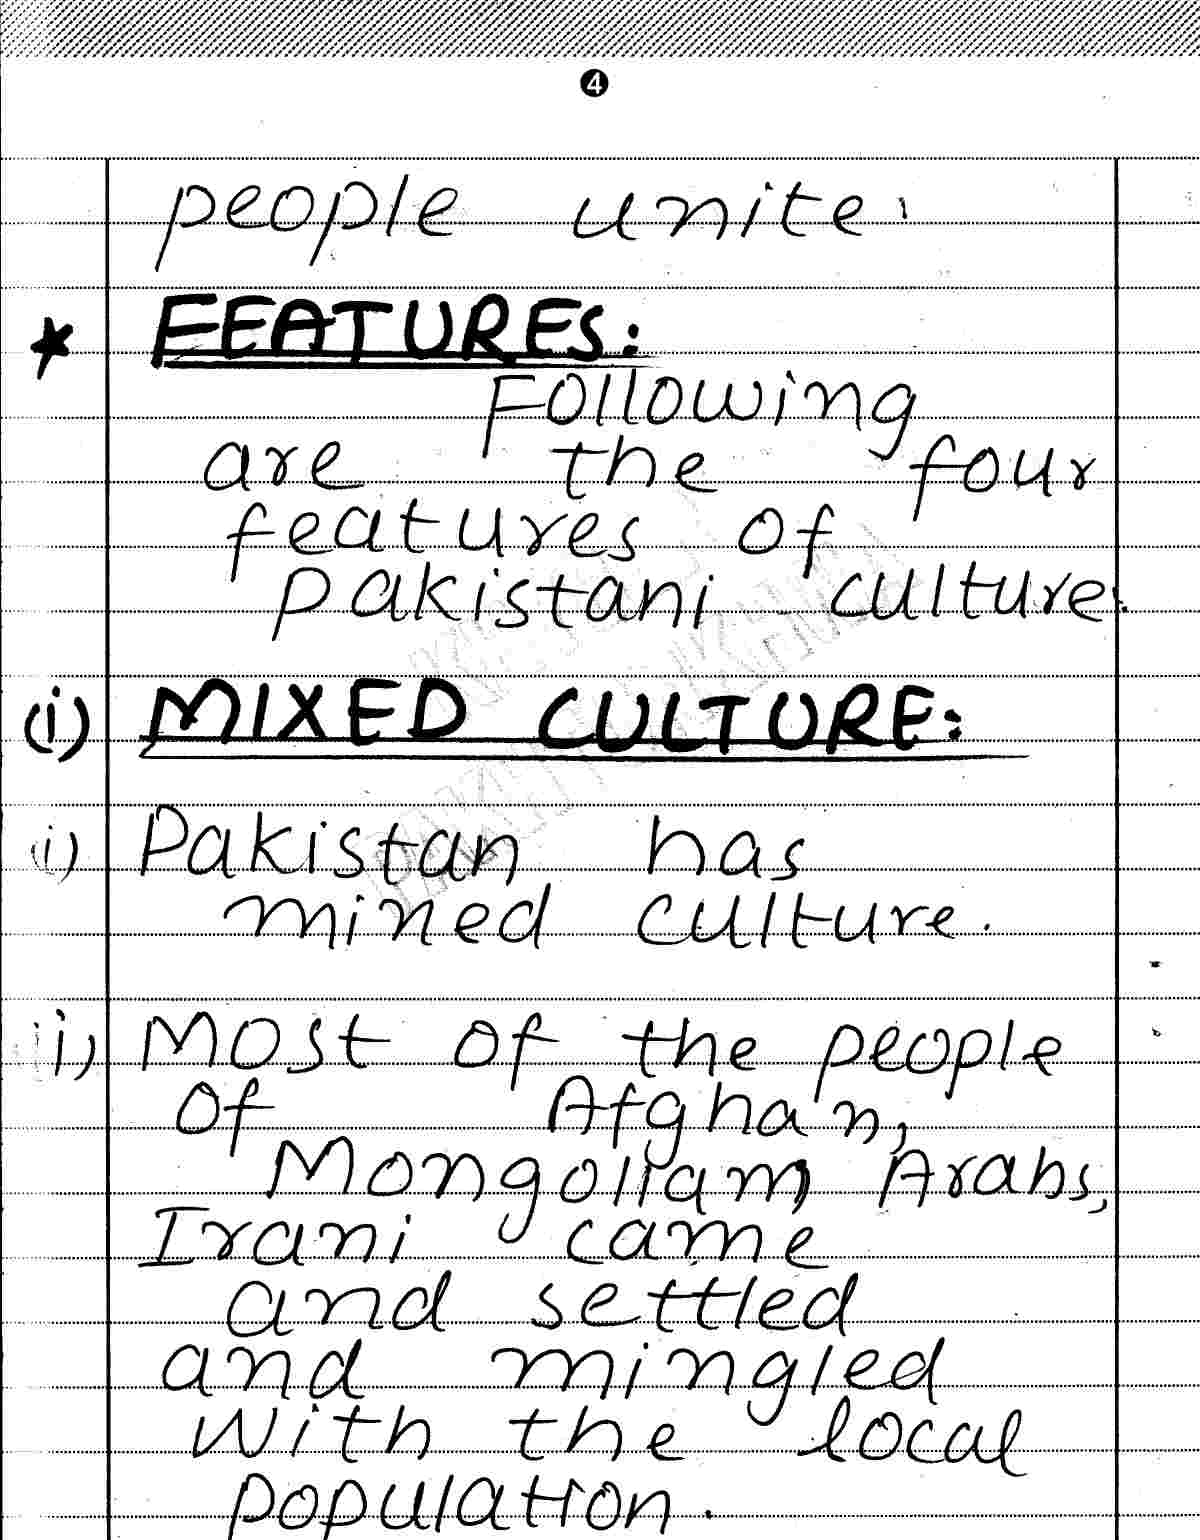 4
people unite.
* FEATURES:
Following
are the four
features of
pakistani culture.
(i) MIXED CULTURE:
(i) Pakistan has
mined culture.
ii) Most of the people
of Afghan,
Mongoliam, Arabs,
Irani came
and settled
and mingled
with the local
population.